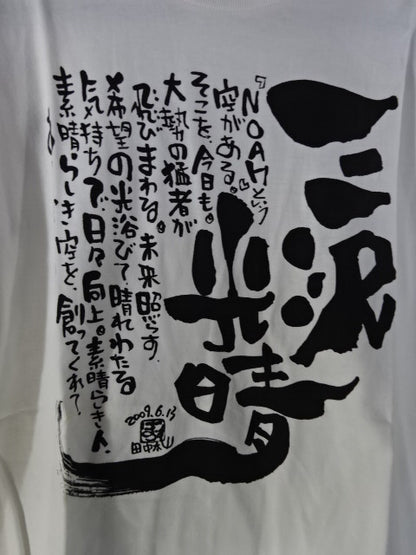 三沢
光晴
『NOAHという
空がある。』
そこを今日も。
大勢の猛者が
飛びまわる。未来照らす、
希望の光浴びて、晴れわたる
気持ちで、日々向上。素晴らしき人、
素晴らしき空を、創ってくれて、
2009.6.13